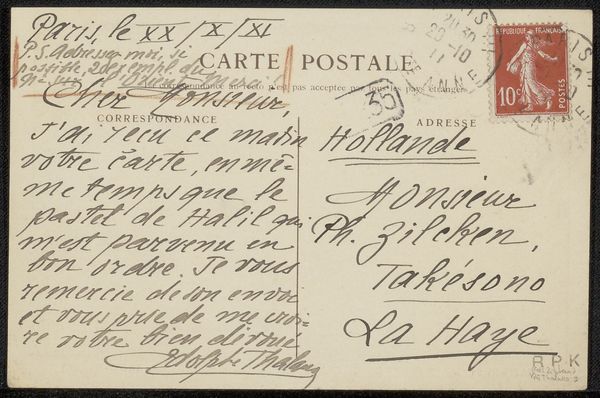 Paris, le XX/X/XI
P.S. Adressez-moi, si
possible, 2 ex. du
Merci!
CARTE POSTALE
La correspondance au recto n'est pas acceptée par tous les pays étrangers
CORRESPONDANCE
Cher Monsieur,
J'ai reçu ce matin
votre carte, en mê-
me temps que le
pastel de Halil qui
m'est parvenu en
bon ordre. Je vous
remercie de son envoi
et vous prie de me croi-
re votre bien dévoué
Adolphe Thalasso
35
ADRESSE
Hollande
Monsieur
Ph. Zilcken,
Takésono
La Haye
20 30
29-10
11
REPUBLIQUE FRANÇAISE
10c
POSTES
R P K